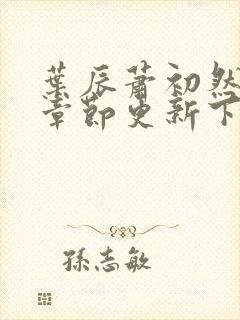 葉辰蕭初然
章節更新下
孫志敏